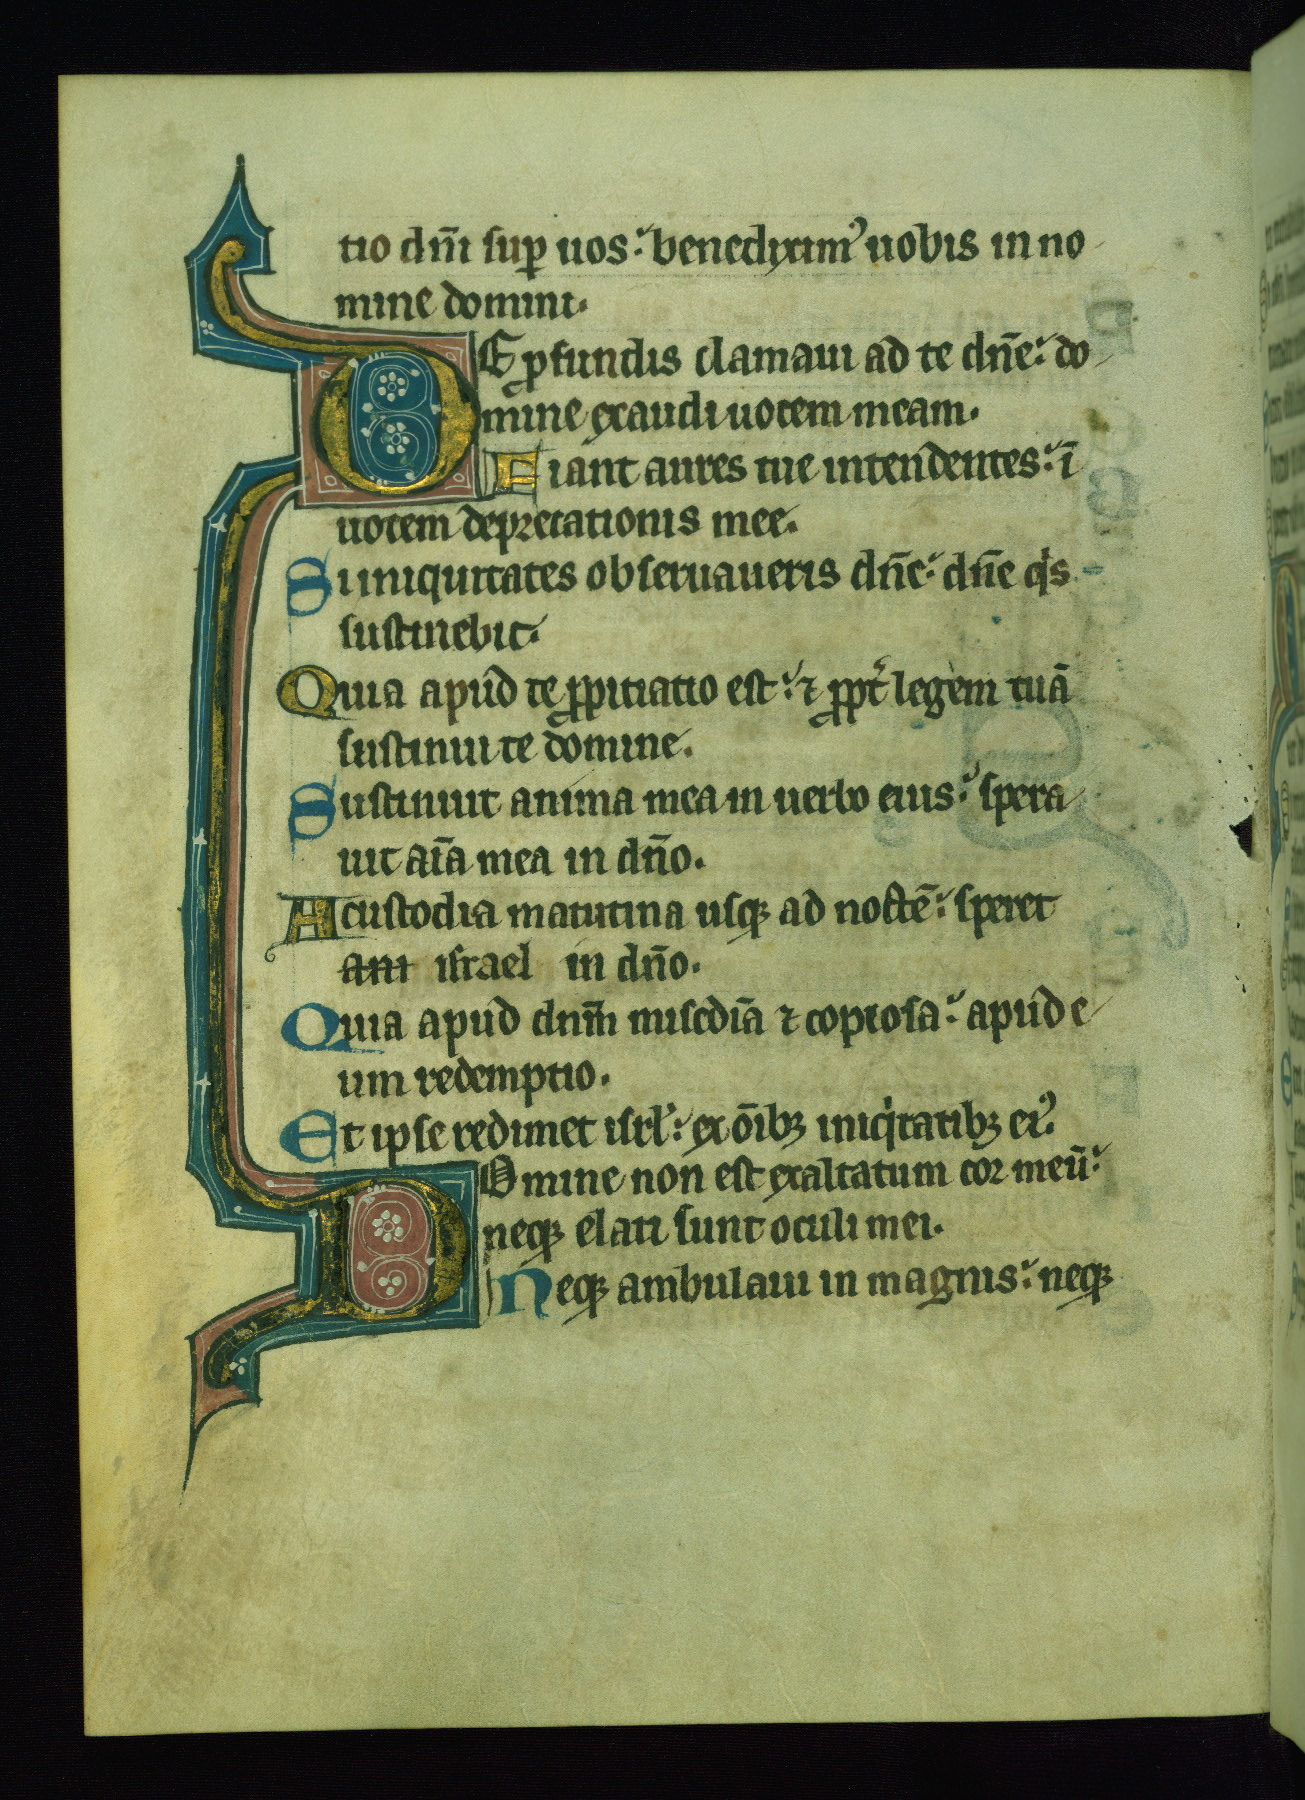 tio dnī sup uos: benedixim᾽ uobis in no
mine domini.
DE pfundis clamaui ad te dnē: do
mine exaudi uocem meam.
Fiant aures tue intendentes: ī
uocem deprecationis mee.
Si iniquitates obseruaueris dnē: dnē qis
sustinebit.
Quia apud te ppitiatio est: ⁊ ppt legem tuā
sustinui te domine.
Sustinuit anima mea in uerbo eius: spera
uit aīa mea in dnō.
A custodia matutina usqꝫ ad noctē: speret
ani israel in dnō.
Quia apud dnm̄ miscdīā ⁊ copiosa: apud e
um redemptio.
Et ipse redimet isrl̓: ex oīb᷒ꝫ iniqitatibꝫ ei᾽.
DOmine non est exaltatum cor meū:
neqꝫ elati sunt oculi mei.
Neqꝫ ambulaui in magnis: neqꝫ